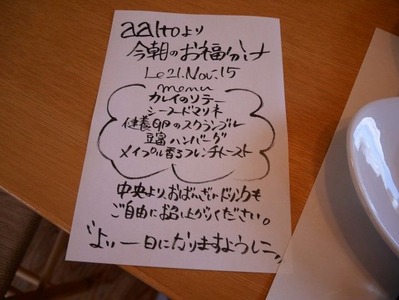 aaltoより
今朝のお福分け
Le 21. Nov. 15
menu
カレイのソテー
シーフードマリネ
健養卵のスクランブル
豆富ハンバーグ
メイプル香るフレンチトースト
中央より、おばんざい、ドリンクも
ご自由に召し上がりください。
よい一日になりますように。